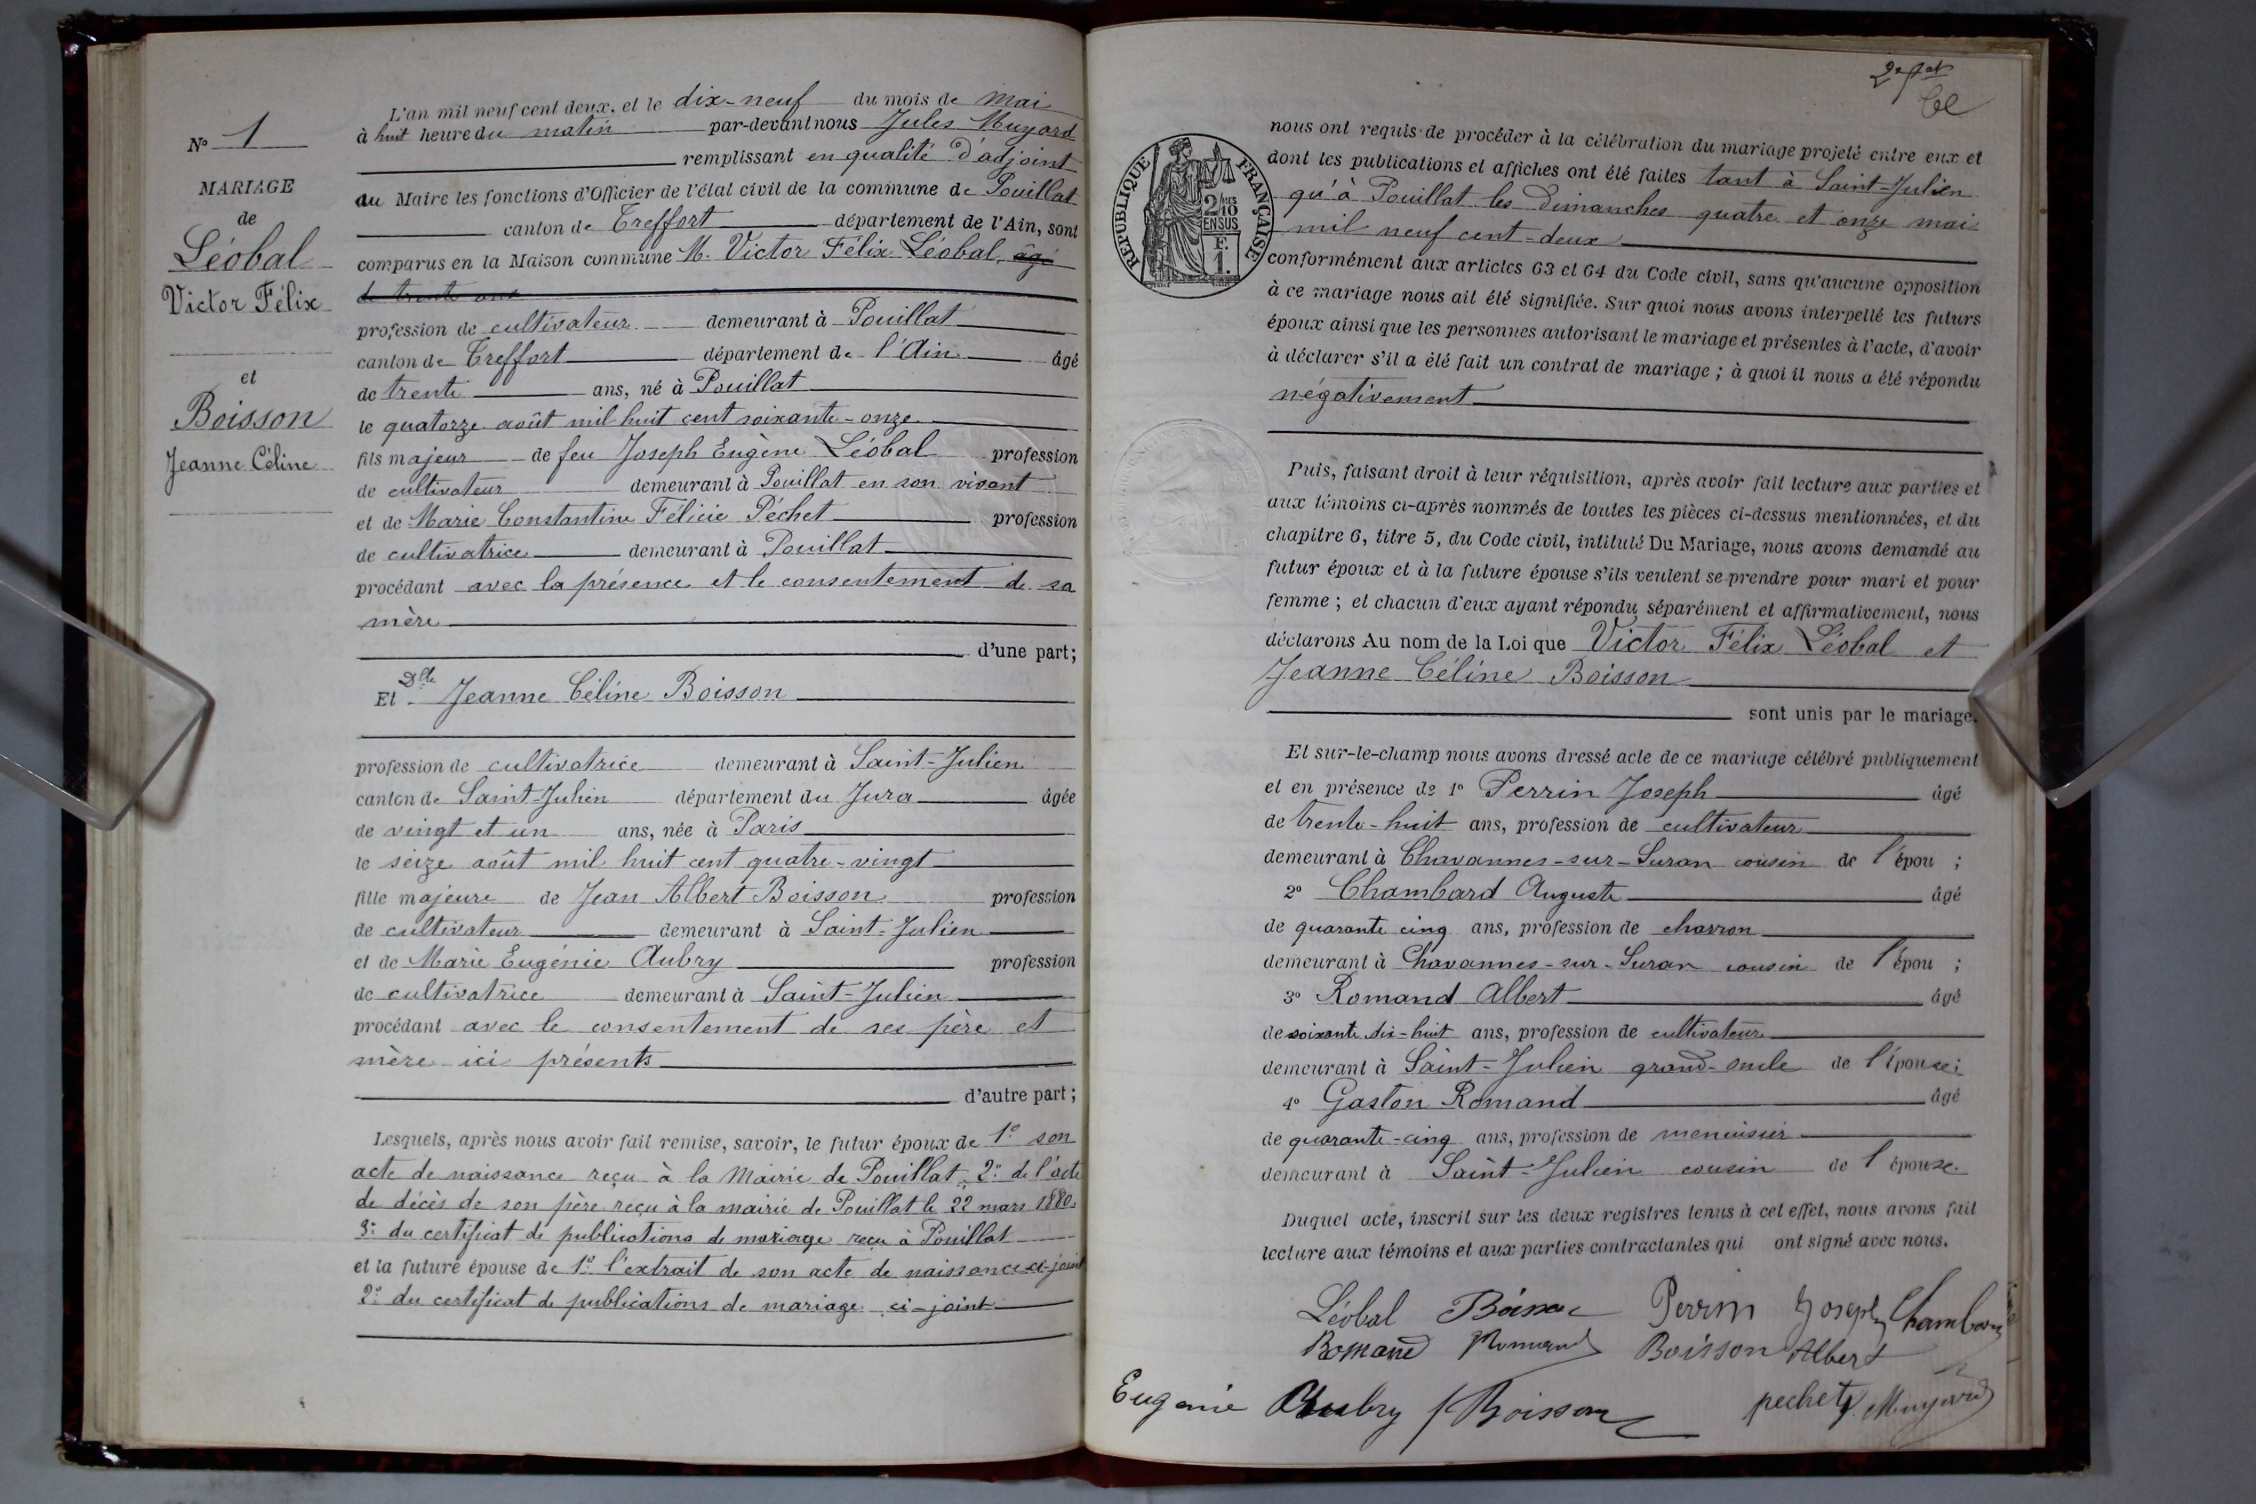 N° 1
MARIAGE
de
Léobal
Victor Félix
et
Boisson
Jeanne Céline
L'an mil neuf cent deux, et le dix-neuf du mois de Mai
à huit heure du matin par-devant nous Jules Muyard
remplissant en qualité d'adjoint
au Maire les fonctions d'Officier de l'état civil de la commune de Pouillat
canton de Treffort département de l'Ain, sont
comparus en la Maison commune M. Victor Félix Léobal, âgé
de trente ans
profession de cultivateur demeurant à Pouillat
canton de Treffort département de l'Ain âgé
de trente ans, né à Pouillat
le quatorze août mil huit cent soixante-onze
fils majeur de feu Joseph Eugène Léobal profession
de cultivateur demeurant à Pouillat en son vivant
et de Marie Constantine Félicie Péchet profession
de cultivatrice demeurant à Pouillat
procédant avec la présence et le consentement de sa
mère
d'une part;
Et Dlle Jeanne Céline Boisson
profession de cultivatrice demeurant à Saint-Julien
canton de Saint-Julien département du Jura âgée
de vingt et un ans, née à Paris
le seize août mil huit cent quatre-vingt
fille majeure de Jean Albert Boisson profession
de cultivateur demeurant à Saint-Julien
et de Marie Eugénie Aubry profession
de cultivatrice demeurant à Saint-Julien
procédant avec le consentement de ses père et
mère ici présents
d'autre part;
Lesquels, après nous avoir fait remise, savoir, le futur époux de 1° son
acte de naissance reçu à la Mairie de Pouillat, 2° de l'acte
de décès de son père reçu à la mairie de Pouillat le 22 mars 1880,
3° du certificat de publications de mariage reçu à Pouillat
et la future épouse de 1° l'extrait de son acte de naissance ci-joint
2° du certificat de publications de mariage ci-joint
RÉPUBLIQUE FRANÇAISE
2/10
EN SUS
F.
1.
nous ont requis de procéder à la célébration du mariage projeté entre eux et
dont les publications et affiches ont été faites tant à Saint-Julien
qu'à Pouillat les dimanches quatre et onze mai
mil neuf cent-deux
conformément aux articles 63 et 64 du Code civil, sans qu'aucune opposition
à ce mariage nous ait été signifiée. Sur quoi nous avons interpellé les futurs
époux ainsi que les personnes autorisant le mariage et présentes à l'acte, d'avoir
à déclarer s'il a été fait un contrat de mariage; à quoi il nous a été répondu
négativement
Puis, faisant droit à leur réquisition, après avoir fait lecture aux parties et
aux témoins ci-après nommés de toutes les pièces ci-dessus mentionnées, et du
chapitre 6, titre 5, du Code civil, intitulé Du Mariage, nous avons demandé au
futur époux et à la future épouse s'ils veulent se prendre pour mari et pour
femme; et chacun d'eux ayant répondu séparément et affirmativement, nous
déclarons Au nom de la Loi que Victor Félix Léobal et
Jeanne Céline Boisson
sont unis par le mariage.
Et sur-le-champ nous avons dressé acte de ce mariage célébré publiquement
et en présence de 1° Perrin Joseph âgé
de trente-huit ans, profession de cultivateur
demeurant à Chavannes-sur-Suran cousin de l'épou ;
2° Chambard Auguste âgé
de quarante cinq ans, profession de charron
demeurant à Chavannes-sur-Suran cousin de l'épou ;
3° Romand Albert âgé
de soixante dix-huit ans, profession de cultivateur
demeurant à Saint-Julien grand-oncle de l'épouse;
4° Gaston Romand âgé
de quarante-cinq ans, profession de menuisier
demeurant à Saint-Julien cousin de l'épouse.
Duquel acte, inscrit sur les deux registres tenus à cet effet, nous avons fait
lecture aux témoins et aux parties contractantes qui ont signé avec nous.
Léobal Boisson Perrin Joseph Chambard
Romand Romand Boisson Albert
Eugenie Aubry f Boisson pechet Muyard